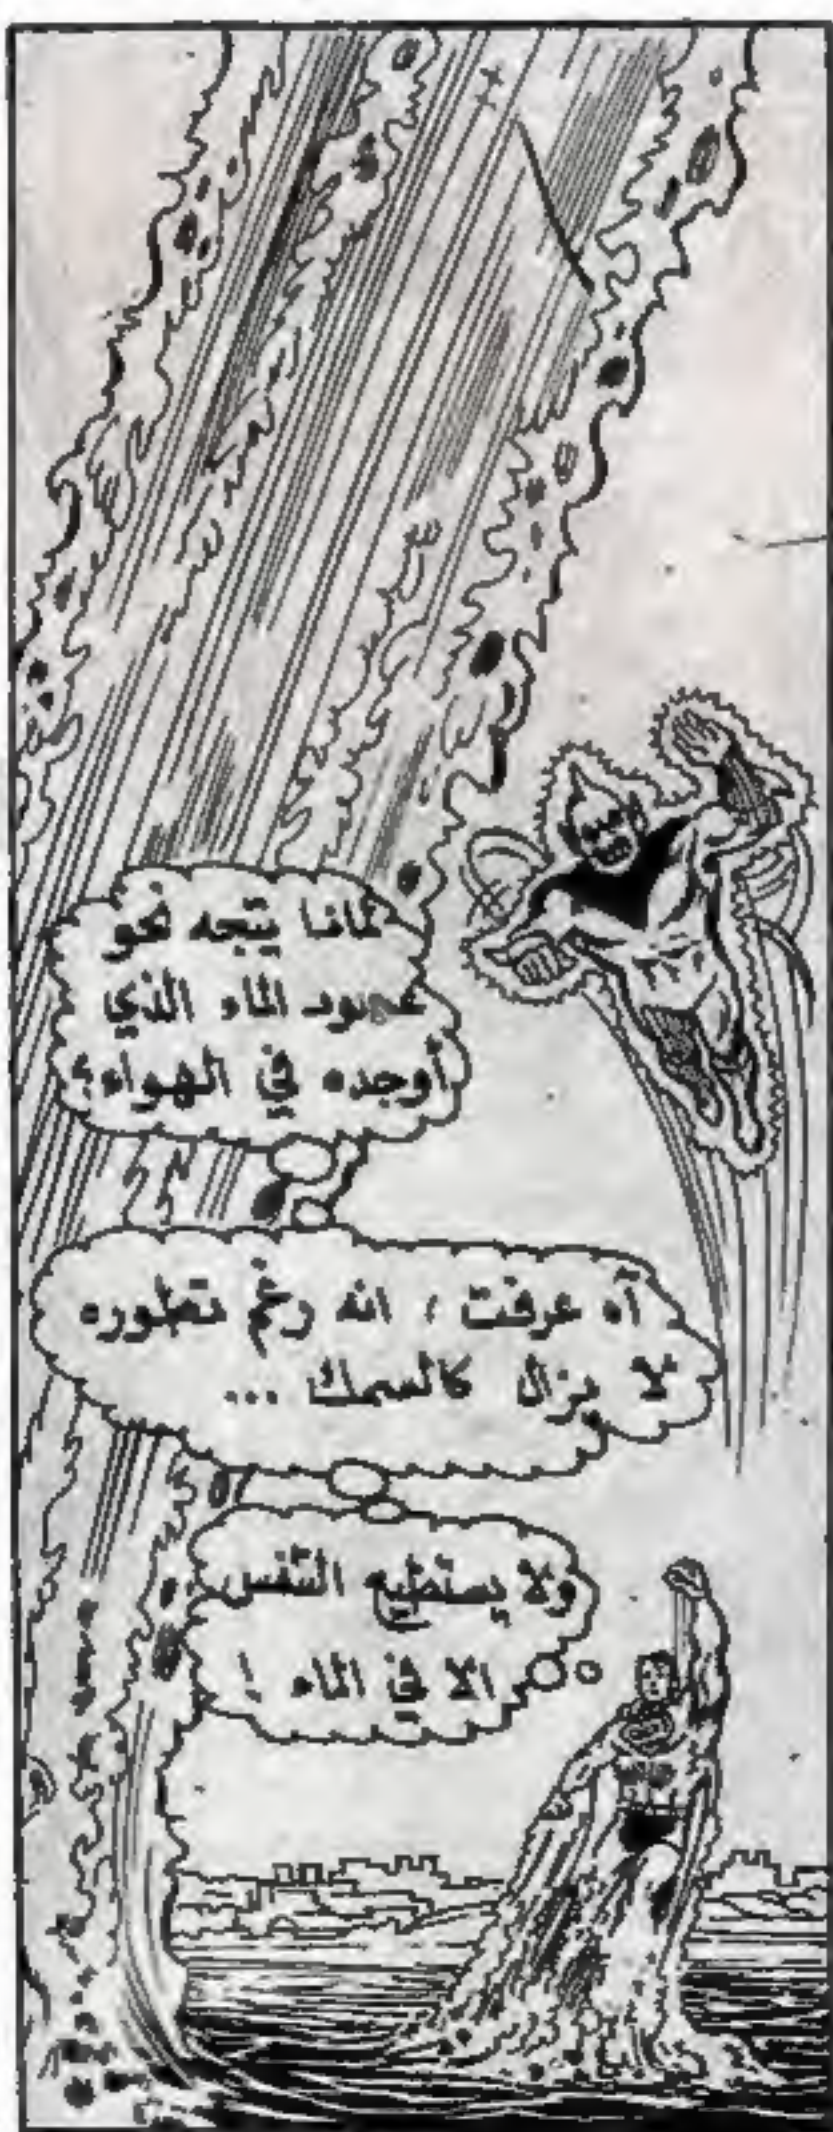 لماذا يتجه نحو
عمود الماء الذي
أوجده في الهواء؟
آه عرفت ، انه رغم تطوره
لا يزال كالسمك ...
ولا يستطيع التنفس
الا في الماء !